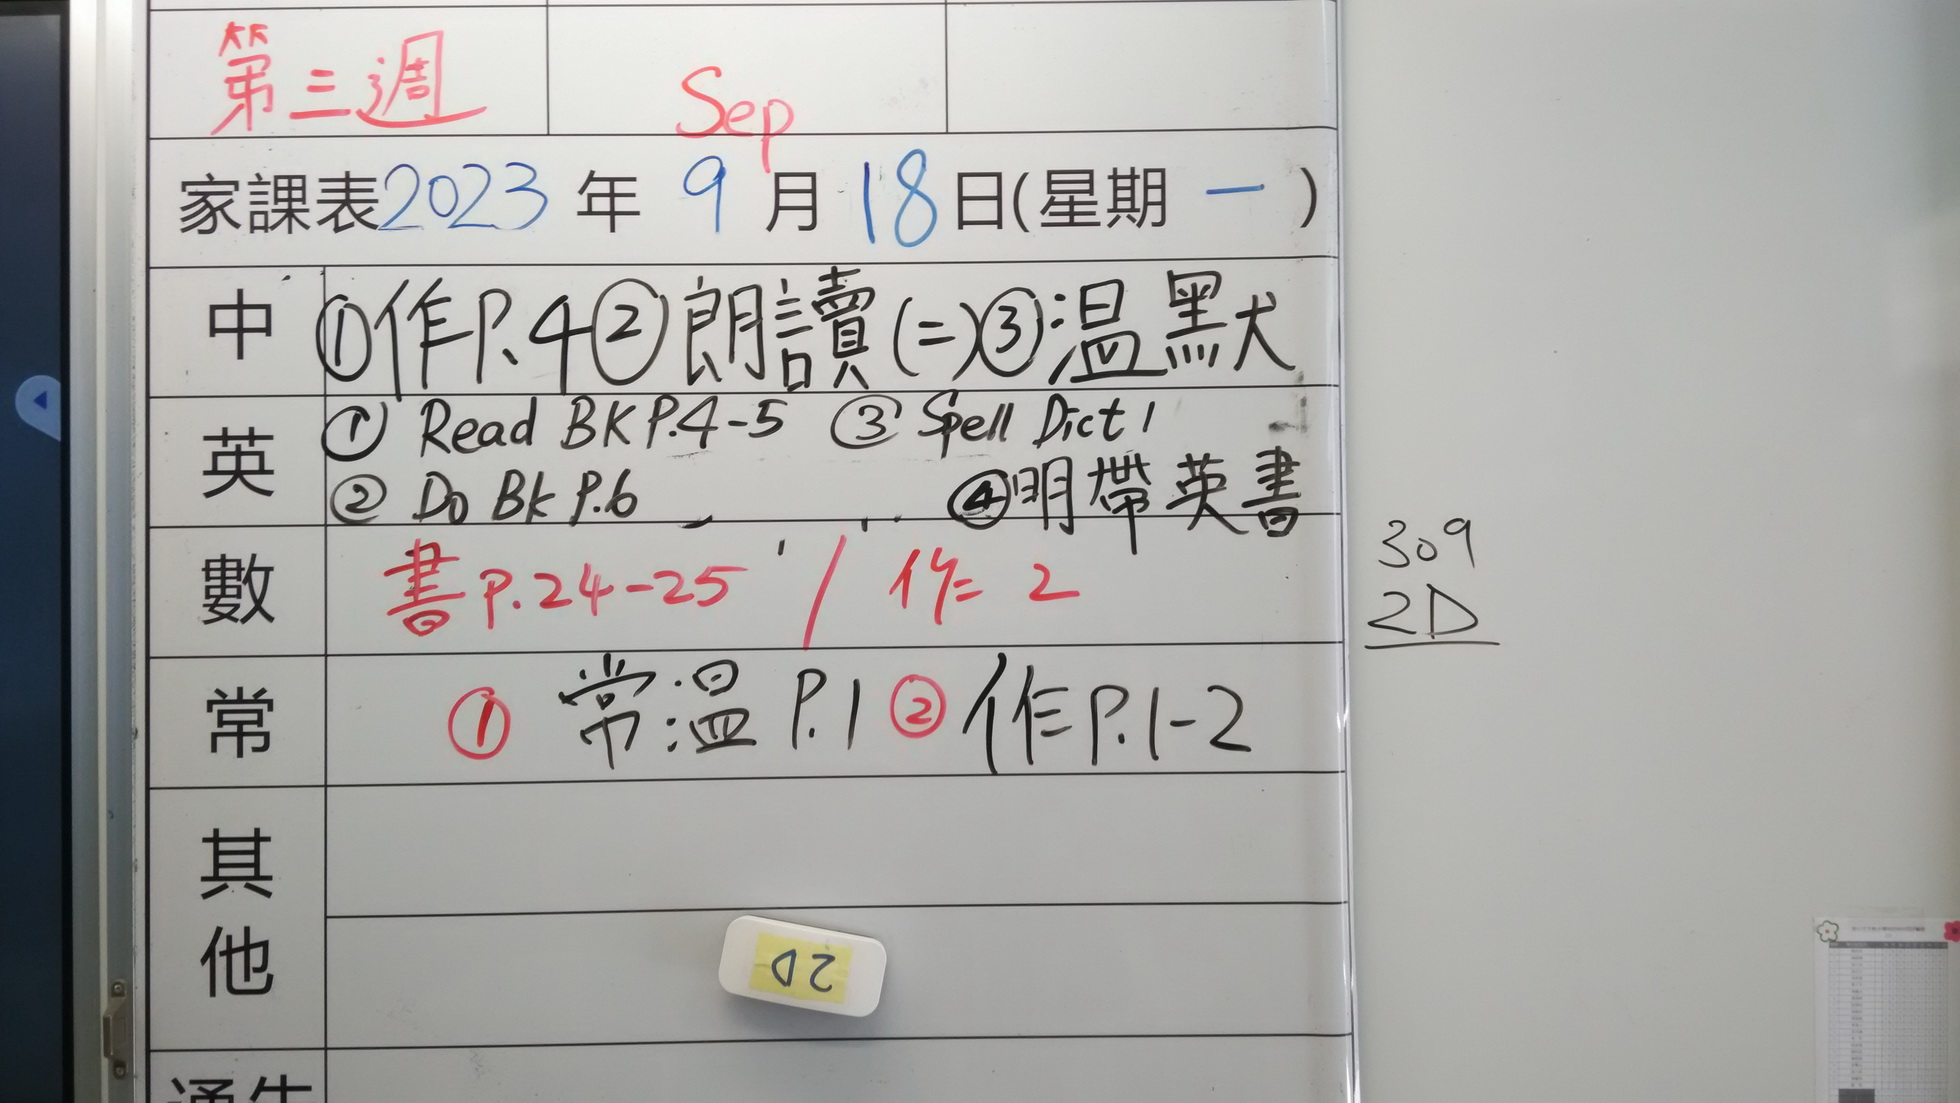 第三週 Sep
家課表2023年9月18日(星期一)
中 ①作P.4②朗讀(二)③温默
英 ① Read BK P.4-5 ③ Spell Dict 1
② Do Bk P.6 ④明帶英書
數 書P.24-25 / 作= 2
常 ① 常温 P.1 ② 作P.1-2
其他
通告
309
2D
2D